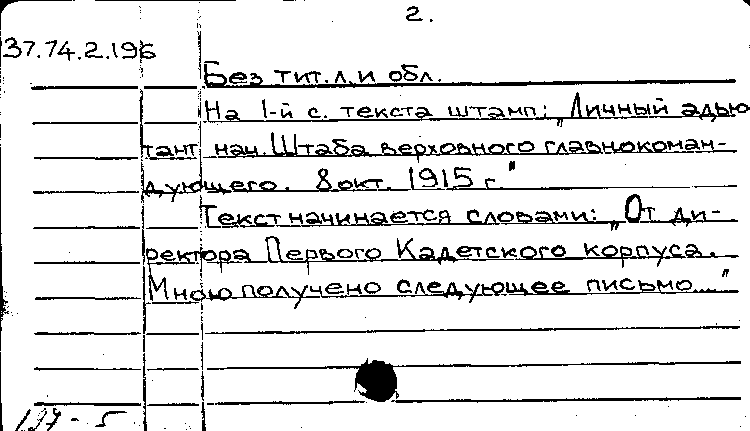 2.
37.74.2.196
Без тит. л. и обл.
На 1-й с. текста штамп: „Личный адъю
тант нач. Штаба верховного главнокоман-
дующего. 8 окт. 1915 г."
Текст начинается словами: „От ди-
ректора Первого Кадетского корпуса.
Мною получено следующее письмо..."
197 - 5